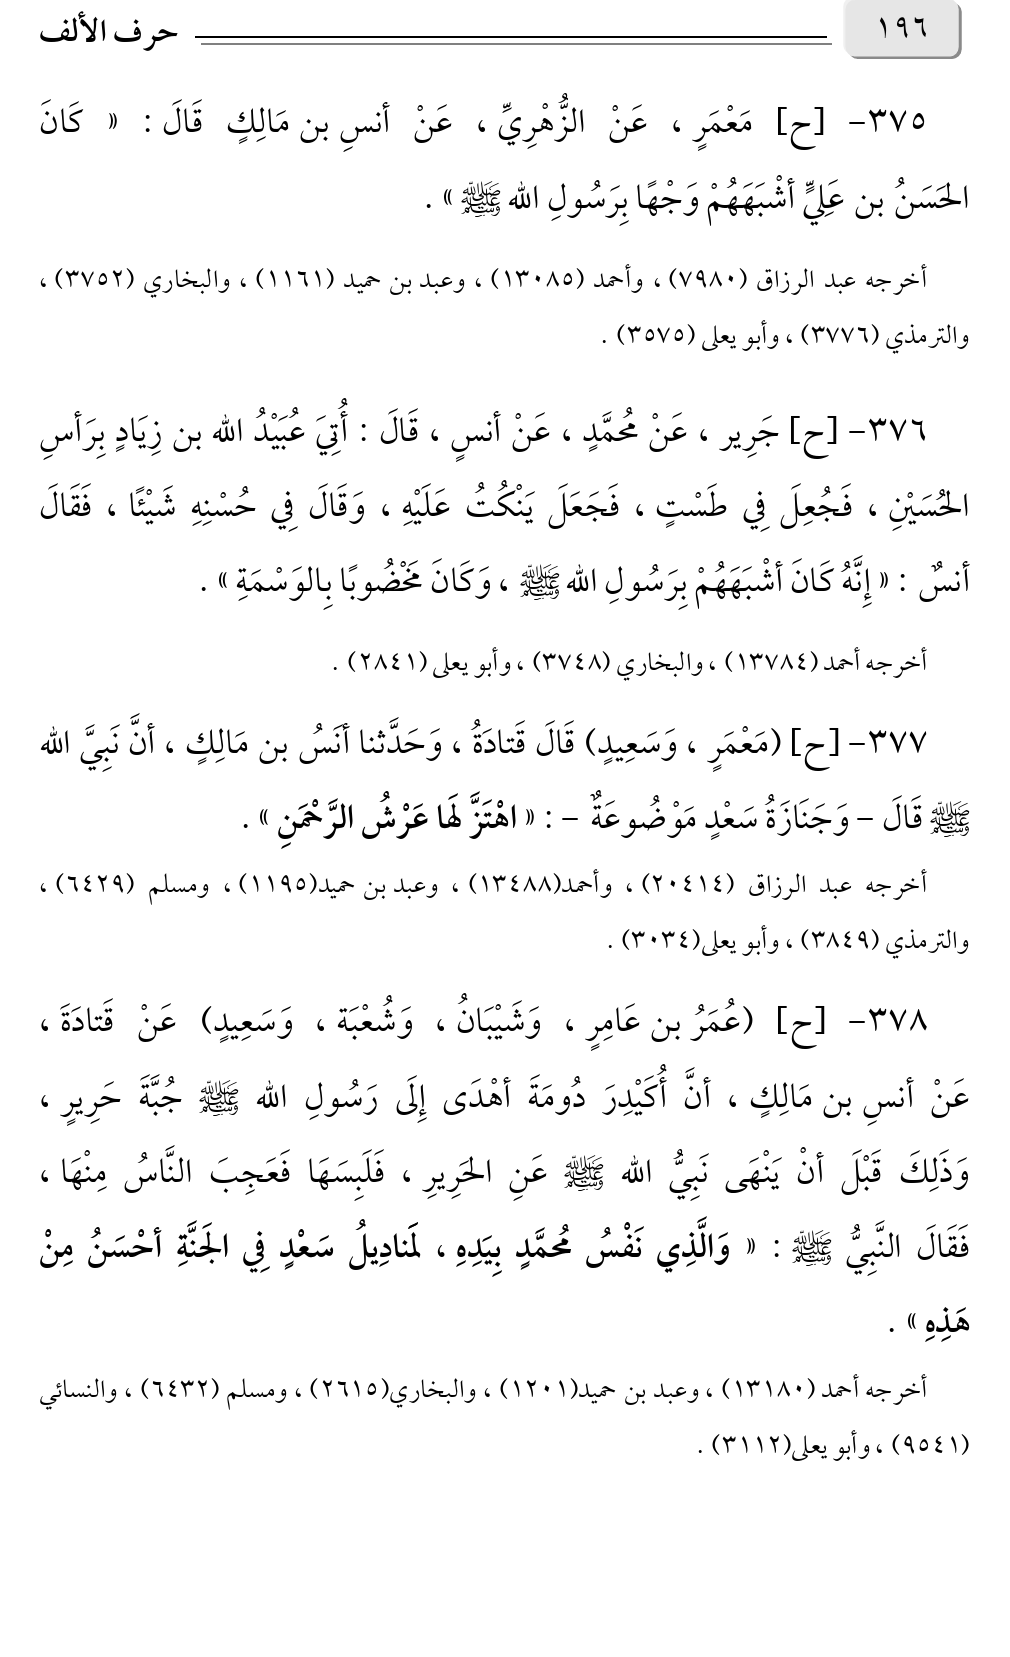 ١٩٦
حرف الألف
٣٧٥- [ح] مَعْمَرٍ ، عَنْ الزُّهْرِيِّ ، عَنْ أنسِ بن مَالِكٍ قَالَ : « كَانَ
الحَسَنُ بن عَلِيٍّ أشْبَهَهُمْ وَجْهًا بِرَسُولِ الله ﷺ » .
أخرجه عبد الرزاق (٧٩٨٠) ، وأحمد (١٣٠٨٥) ، وعبد بن حميد (١١٦١) ، والبخاري (٣٧٥٢) ،
والترمذي (٣٧٧٦) ، وأبو يعلى (٣٥٧٥) .
٣٧٦- [ح] جَرِير ، عَنْ مُحمَّدٍ ، عَنْ أنسٍ ، قَالَ : أُتِيَ عُبَيْدُ الله بن زِيَادٍ بِرَأسِ
الحُسَيْنِ ، فَجُعِلَ فِي طَسْتٍ ، فَجَعَلَ يَنْكُتُ عَلَيْهِ ، وَقَالَ فِي حُسْنِهِ شَيْئًا ، فَقَالَ
أنسٌ : « إِنَّهُ كَانَ أشْبَهَهُمْ بِرَسُولِ الله ﷺ ، وَكَانَ مَخْضُوبًا بِالوَسْمَةِ » .
أخرجه أحمد (١٣٧٨٤) ، والبخاري (٣٧٤٨) ، وأبو يعلى (٢٨٤١) .
٣٧٧- [ح] (مَعْمَرٍ ، وَسَعِيدٍ) قَالَ قَتادَةُ ، وَحَدَّثنا أنَسُ بن مَالِكٍ ، أنَّ نَبِيَّ الله
ﷺ قَالَ - وَجَنَازَةُ سَعْدٍ مَوْضُوعَةٌ - : « اهْتَزَّ لَها عَرْشُ الرَّحْمَنِ » .
أخرجه عبد الرزاق (٢٠٤١٤) ، وأحمد(١٣٤٨٨) ، وعبد بن حميد(١١٩٥) ، ومسلم (٦٤٢٩) ،
والترمذي (٣٨٤٩) ، وأبو يعلى(٣٠٣٤) .
٣٧٨- [ح] (عُمَرُ بن عَامِرٍ ، وَشَيْبَانُ ، وَشُعْبَة ، وَسَعِيدٍ) عَنْ قَتادَةَ ،
عَنْ أنسِ بن مَالِكٍ ، أنَّ أُكَيْدِرَ دُومَةَ أهْدَى إِلَى رَسُولِ الله ﷺ جُبَّةَ حَرِيرٍ ،
وَذَلِكَ قَبْلَ أنْ يَنْهَى نَبِيُّ الله ﷺ عَنِ الحَرِيرِ ، فَلَبِسَهَا فَعَجِبَ النَّاسُ مِنْهَا ،
فَقَالَ النَّبِيُّ ﷺ : « وَالَّذِي نَفْسُ مُحمَّدٍ بِيَدِهِ ، لَمنادِيلُ سَعْدٍ فِي الجَنَّةِ أحْسَنُ مِنْ
هَذِهِ » .
أخرجه أحمد (١٣١٨٠) ، وعبد بن حميد(١٢٠١) ، والبخاري(٢٦١٥) ، ومسلم (٦٤٣٢) ، والنسائي
(٩٥٤١) ، وأبو يعلى(٣١١٢) .